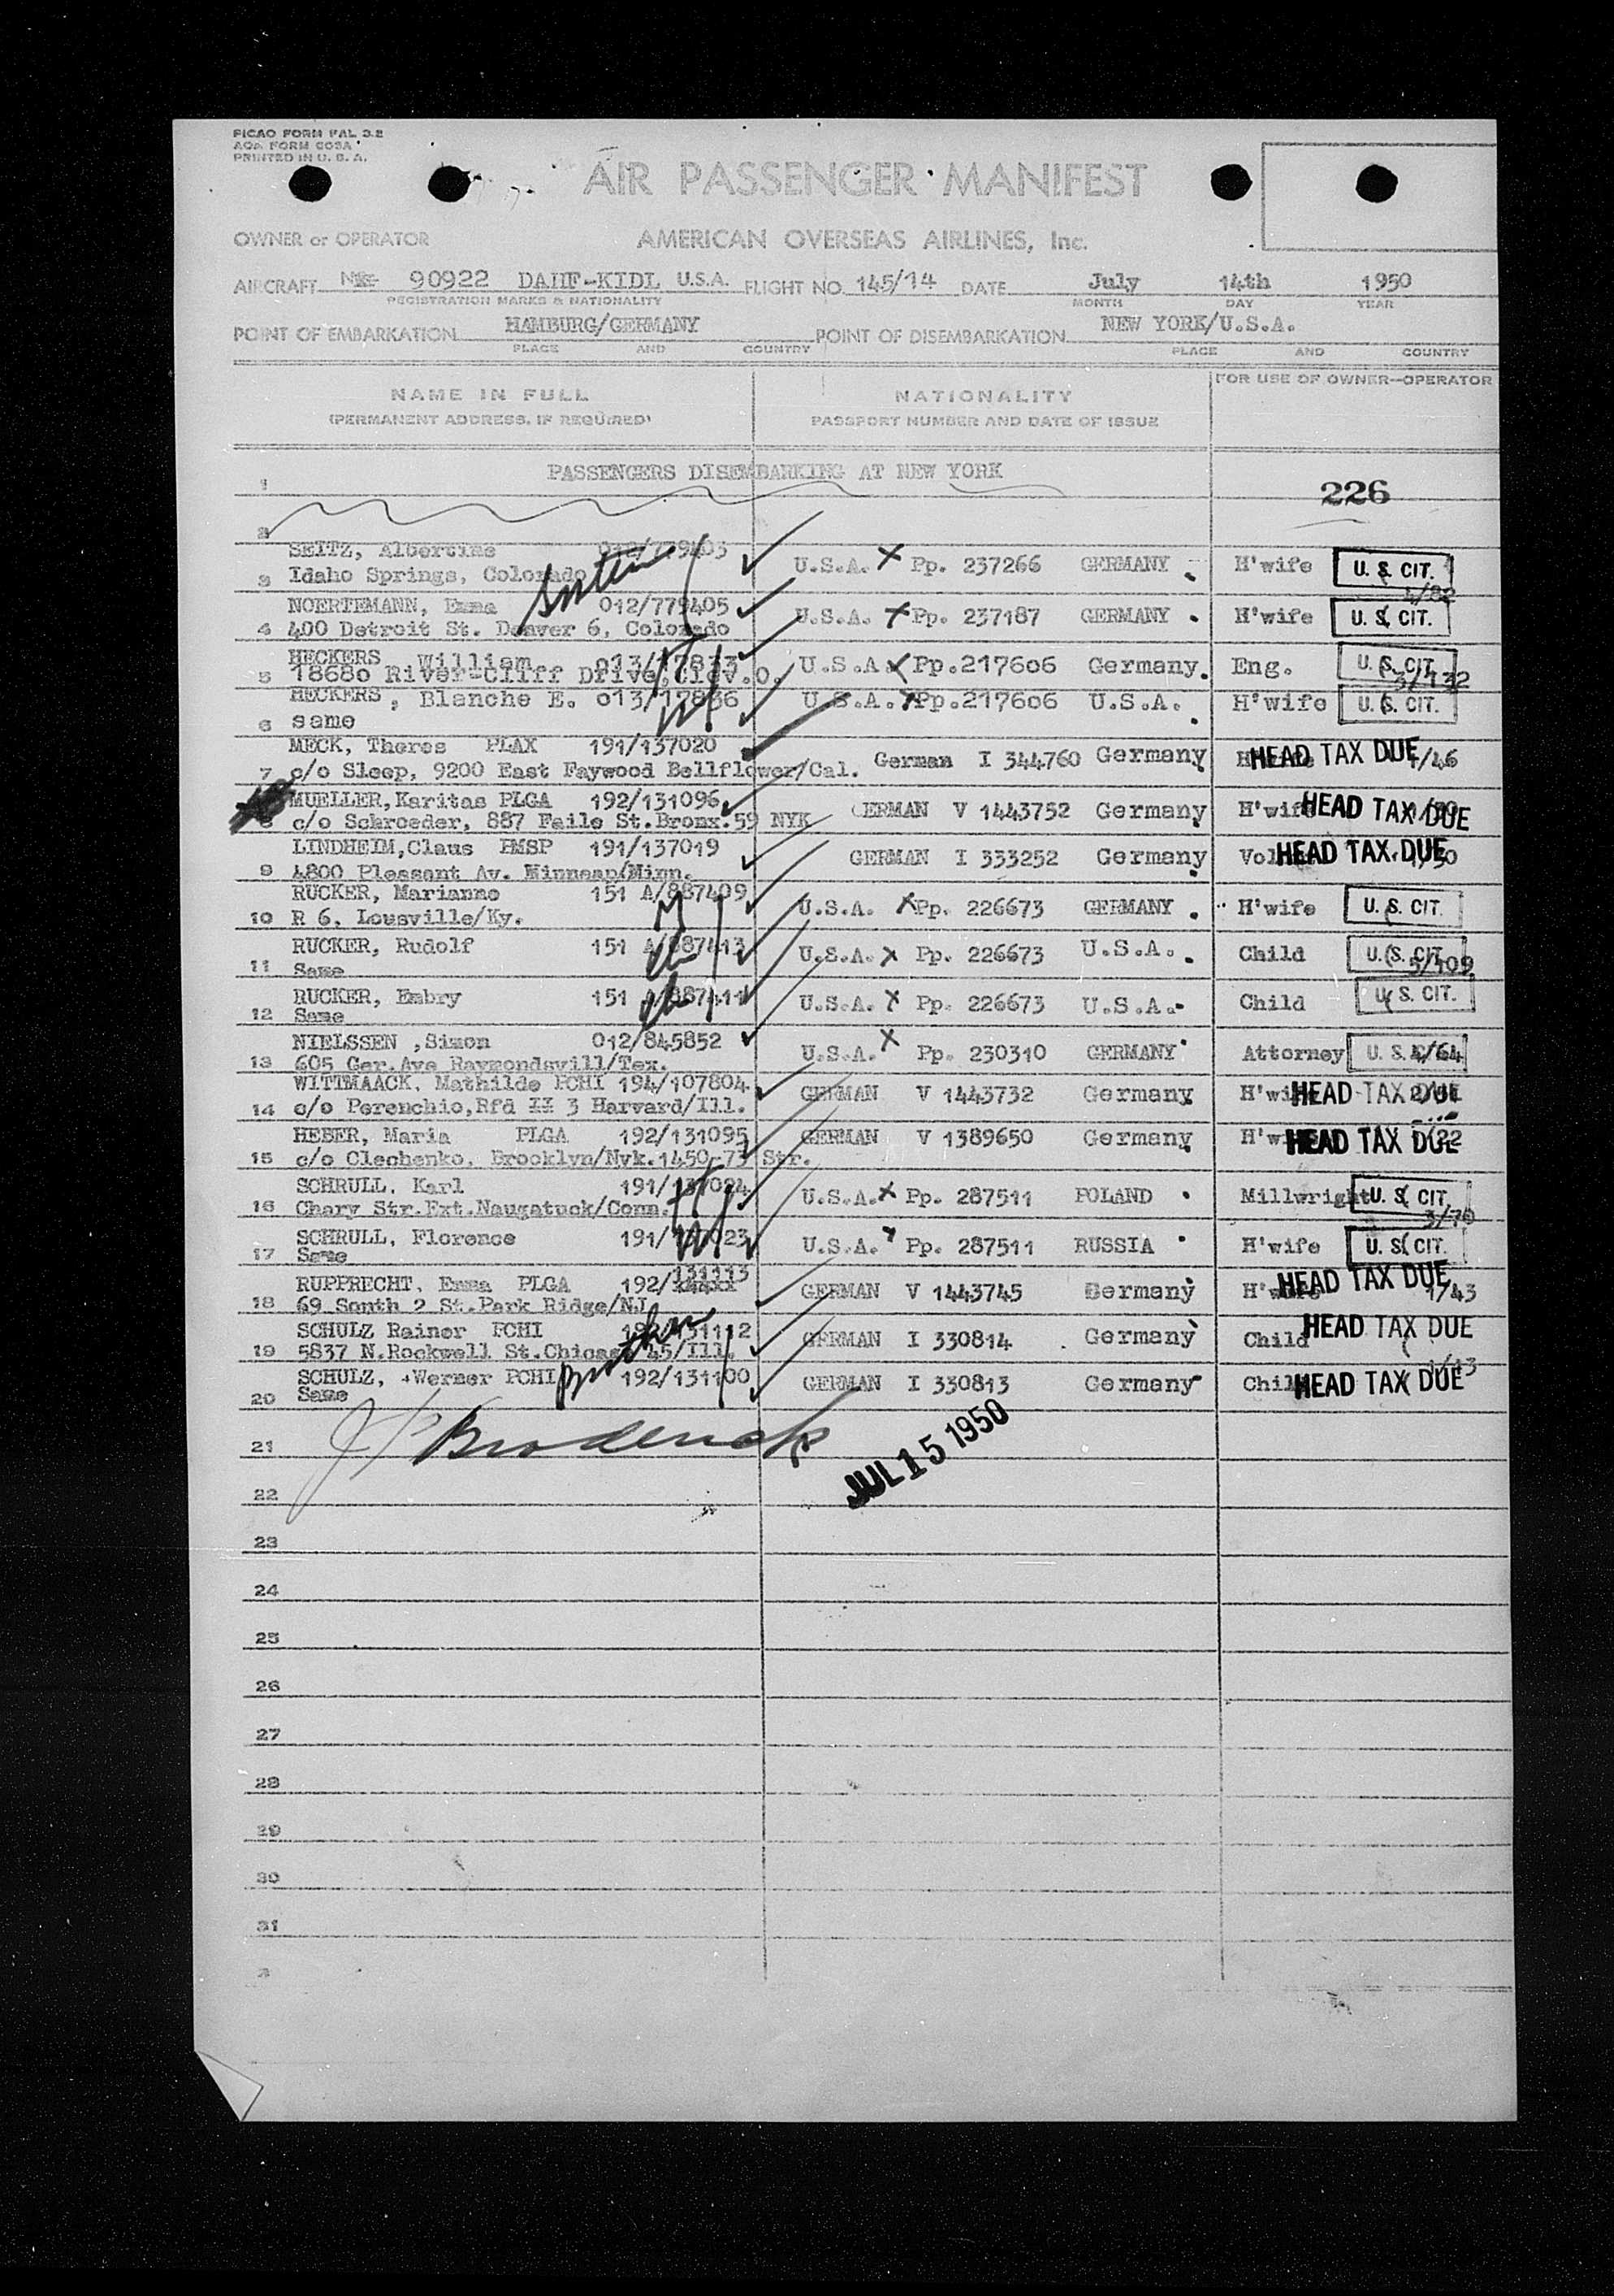 PICAO FORM PAL 3.2
AOA FORM 605A
PRINTED IN U. S. A.
AIR PASSENGER MANIFEST
OWNER or OPERATOR AMERICAN OVERSEAS AIRLINES, Inc.
AIRCRAFT 90922 DAHF-KIDL U.S.A. FLIGHT NO. 145/14 DATE July 14th 1950
REGISTRATION MARKS & NATIONALITY MONTH DAY YEAR
POINT OF EMBARKATION HAMBURG/GERMANY POINT OF DISEMBARKATION NEW YORK/U.S.A.
PLACE AND COUNTRY PLACE AND COUNTRY
NAME IN FULL NATIONALITY FOR USE OF OWNER-OPERATOR
(PERMANENT ADDRESS, IF REQUIRED) PASSPORT NUMBER AND DATE OF ISSUE
PASSENGERS DISEMBARKING AT NEW YORK
1 226
2
SEITZ, Albertine U.S.A. X Pp. 237266 GERMANY H'wife U. S. CIT.
3 Idaho Springs, Colorado
NOERTEMANN, Emma 012/779405 U.S.A. X Pp. 237187 GERMANY H'wife U. S. CIT.
4 400 Detroit St. Denver 6, Colorado
HECKERS William 013/17833 U.S.A. Pp.217606 Germany. Eng. U. S. CIT.
5 18680 River-Cliff Drive, Clev.O. 3/132
HECKERS, Blanche E. 013/17836 U.S.A. Pp.217606 U.S.A. H'wife U. S. CIT.
6 same
MECK, Theres PLAX 191/137020 German I 344760 Germany HEAD TAX DUE 1/46
7 c/o Sleep, 9200 East Faywood Bellflower/Cal.
MUELLER,Karitas PLGA 192/131096 GERMAN V 1443752 Germany H'wife HEAD TAX DUE
8 c/o Schroeder, 887 Faile St.Bronx.59 NYK
LINDHEIM,Claus PMSP 191/137019 GERMAN I 333252 Germany HEAD TAX DUE
9 4800 Pleasant Av. Minneap/Minn.
RUCKER, Marianne 151 A/887409 U.S.A. X Pp. 226673 GERMANY H'wife U. S. CIT.
10 R 6, Lousville/Ky.
RUCKER, Rudolf 151 A/887413 U.S.A. X Pp. 226673 U.S.A. Child U. S. CIT.
11 Same 5/109
RUCKER, Embry 151 U.S.A. X Pp. 226673 U.S.A. Child U. S. CIT.
12 Same
NIELSSEN ,Simon 012/845852 U.S.A. X Pp. 230310 GERMANY Attorney U. S. 4/64
13 605 Ger.Ave Raymondsvill/Tex.
WITTMAACK, Mathilde PCHI 194/107804 GERMAN V 1443732 Germany H'wife HEAD TAX DUE
14 c/o Perenchio,Rfd 3 Harvard/Ill.
HEBER, Maria PLGA 192/131095 GERMAN V 1389650 Germany HEAD TAX DUE
15 c/o Clechenko, Brooklyn/Nyk.1450-73 Str.
SCHRULL, Karl 191/137024 U.S.A. X Pp. 287511 POLAND Millwright U. S. CIT.
16 Chary Str.Ext.Naugatuck/Conn. 3/70
SCHRULL, Florence U.S.A. Pp. 287511 RUSSIA H'wife U. S. CIT.
17 Same
RUPPRECHT, Emma PLGA 192/131113 GERMAN V 1443745 Germany H'wife HEAD TAX DUE 1/43
18 69 South 2 St.Park Ridge/NJ
SCHULZ Rainer PCHI 192/131112 GERMAN I 330814 Germany Child HEAD TAX DUE
19 5837 N.Rockwell St.Chicago 45/Ill. 1/13
SCHULZ, Werner PCHI Brother 192/131100 GERMAN I 330813 Germany Child HEAD TAX DUE
20 Same
21 Broderick
JUL 15 1950
22
23
24
25
26
27
28
29
30
31